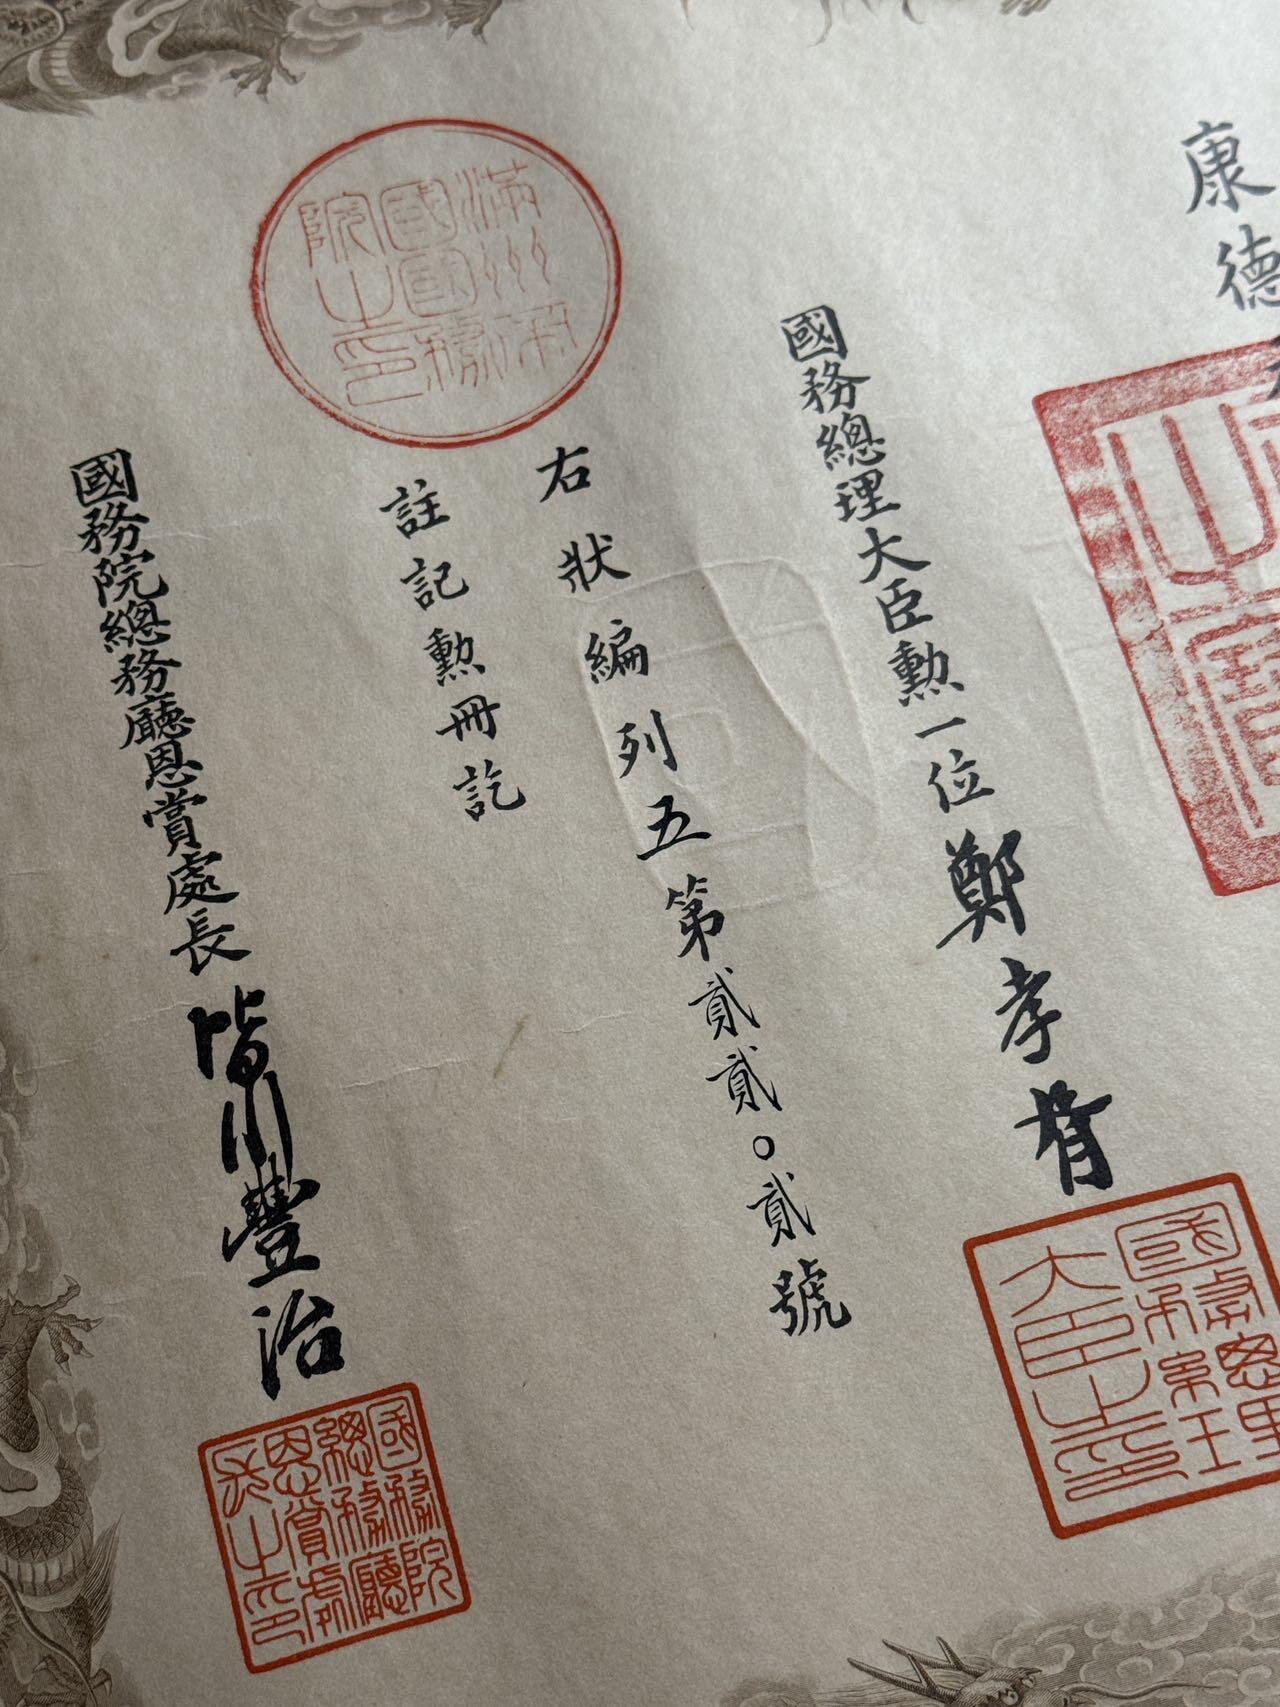 康德
國務總理大臣勲一位鄭孝胥
右狀編列五第貳貳〇貳號
註記勲冊訖
國務院總務廳恩賞處長皆川豐治
滿洲帝
國國務
院之印
之寶
國務總理
大臣之印
國務院
總務廳
恩賞處
長之印